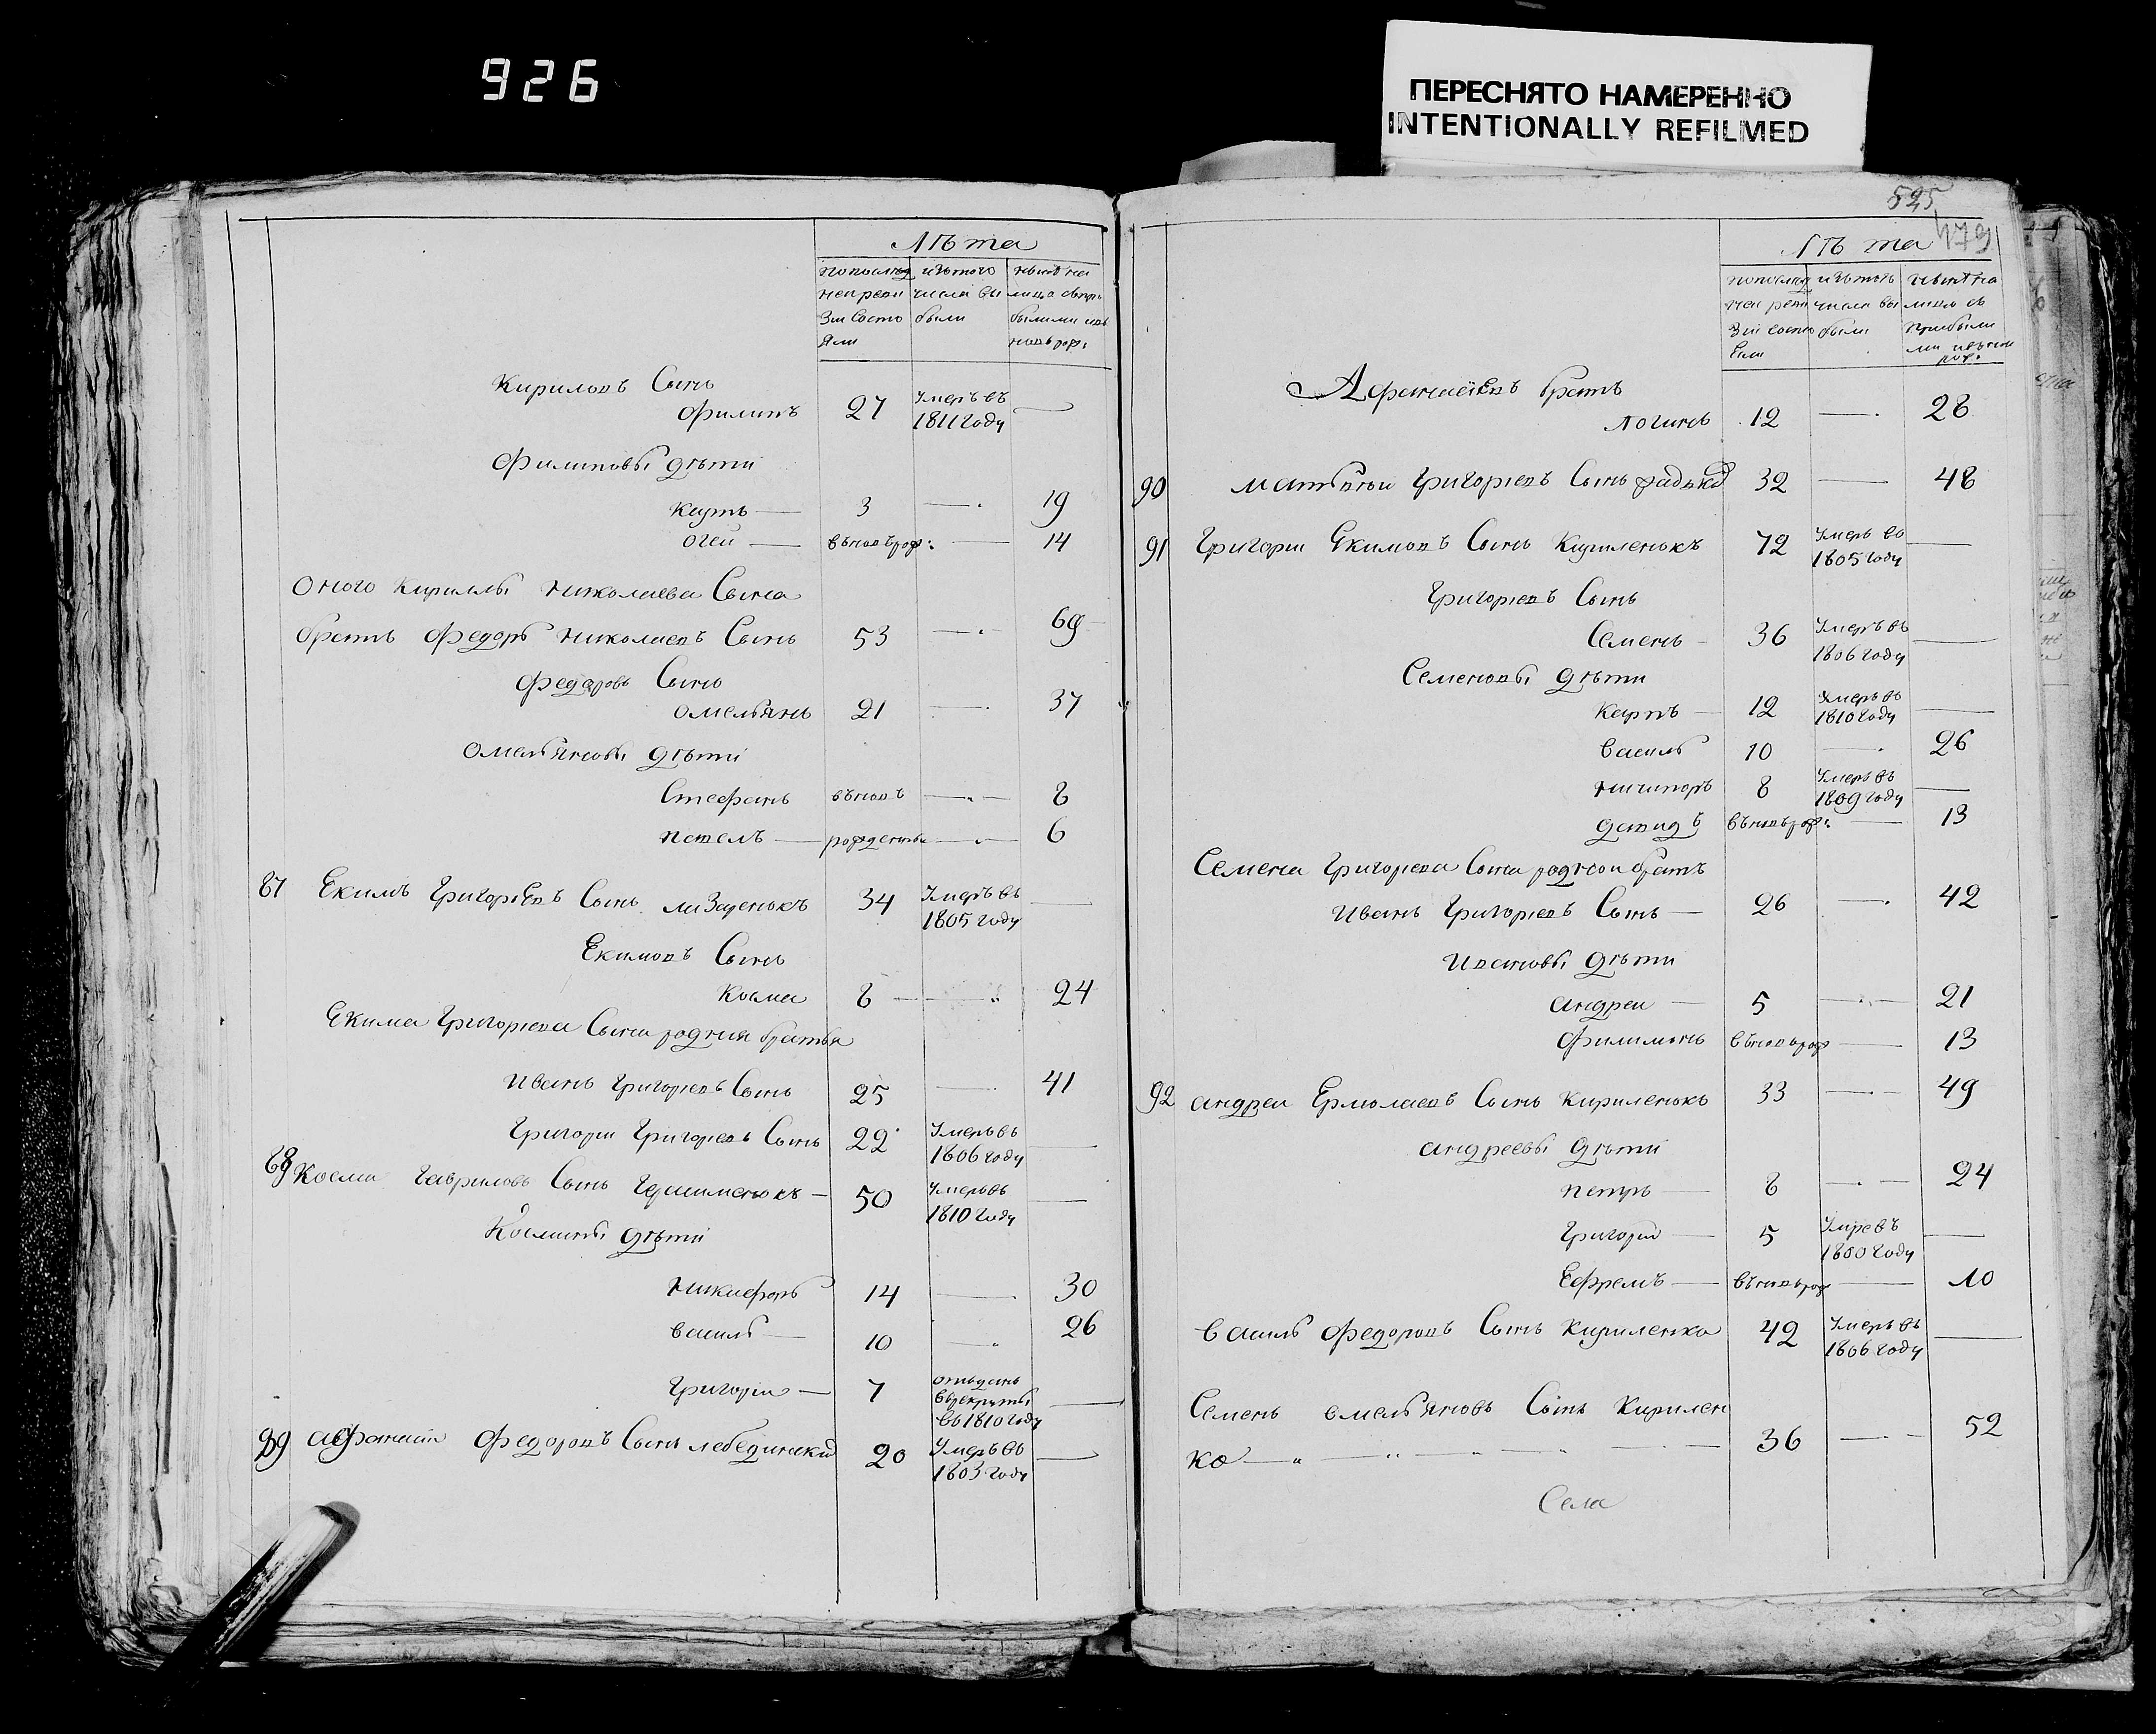 926
ПЕРЕСНЯТО НАМЕРЕННО
INTENTIONALLY REFILMED
Лѣта
по послед изътого ныне на
ней реви числа вы лицо съпри
зіи состо были былыми изъ
яли новъ рож:
Кириловъ Сынъ
Филипъ 27 Умеръ въ 1811 году —
Филиповы дѣти
Карпъ — 3 — 19
Огей — въновърож: — 14
Оного Кирилы Николаева Сына
братъ Федоръ Николаевъ Сынъ 53 — 69
Федоровъ Сынъ
Омельянъ 21 — 37
Омельяновы дѣти
Стефанъ въновъ — 8
Павелъ — рожденны — 6
87 Екимъ Григорьевъ Сынъ Лизаренокъ 34 Умеръ въ 1805 году —
Екимовъ Сынъ
Косма 8 — 24
Екима Григорьева Сына родния братья
Иванъ Григорьевъ Сынъ 25 — 41
Григорій Григорьевъ Сынъ 22 Умеръ въ 1806 году —
88 Косма Гавриловъ Сынъ Герасименокъ — 50 Умеръ въ 1810 году —
Космины дѣти
Никифоръ 14 — 30
Василь — 10 — 26
Григорій — 7 отъданъ въ рекруты въ 1810 году —
89 Афанасій Федоровъ Сынъ Лебединский 20 Умеръ въ 1803 году —
525
479
Лѣта
по послед изътого ныне на
ней реви числа вы лицо съ
зіи состо были прибыли
яли ми изънов рож:
Афанасіевъ братъ
Логинъ 12 — 28
90 Матвѣй Григорьевъ Сынъ 32 — 48
91 Григорій Екимовъ Сынъ Кириленокъ 72 Умеръ во 1805 году —
Григорьевъ Сынъ
Семенъ — 36 Умеръ въ 1806 году —
Семеновы дѣти
Карпъ — 12 Умеръ въ 1810 году —
Василь 10 — 26
Ничипоръ 8 Умеръ въ 1809 году —
Давидъ въновърож: — 13
Семена Григорьева Сына родной братъ
Иванъ Григорьевъ Сынъ — 26 — 42
Ивановы дѣти
Андрей — 5 — 21
Филимонъ въновърож — 13
92 Андрей Ермолаевъ Сынъ Кириленокъ 33 — 49
Андреевы дѣти
Петръ — 8 — 24
Григорій — 5 Умре въ 1800 году —
Ефремъ — въновърож — 10
Василь Федоровъ Сынъ Кириленко 42 Умеръ въ 1806 году —
Семенъ Омельяновъ Сынъ Кирилен
ко — 36 — 52
Села